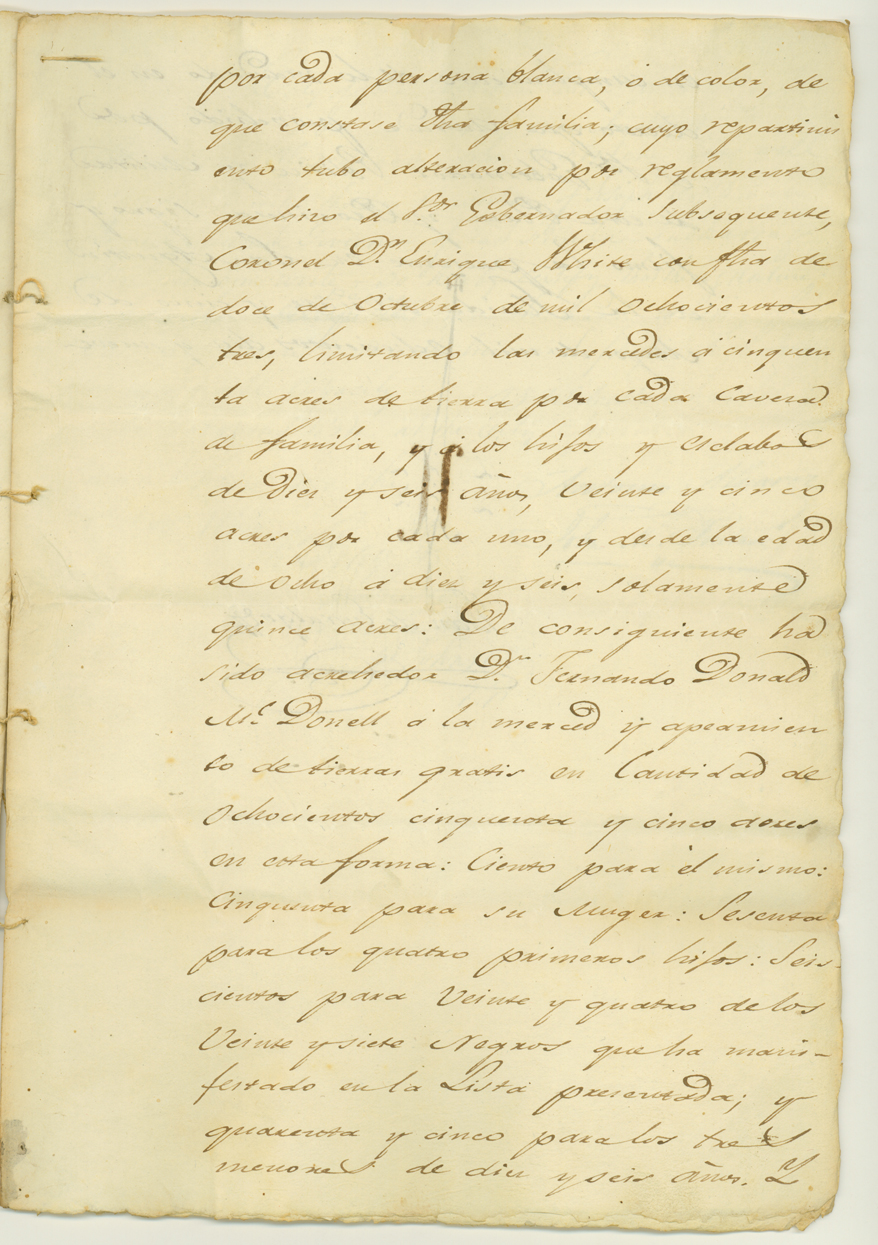 por cada persona blanca, o de color, de
que constase dha familia; cuyo repartimi
ento tubo alteracion por reglamento
que hizo el S.or Gobernador subsequente,
Coronel D.n Enrique White con fha de
doce de Octubre de mil ochocientos
tres, limitando las mercedes á cinquen
ta acres de tierra por cada Caveza
de familia, y á los hijos y esclabos
de diez y seis años, veinte y cinco
acres por cada uno, y desde la edad
de ocho á diez y seis, solamente
quince acres: De consiguiente ha
sido acrehedor D.n Fernando Donald
M.c Donell á la merced y apeamien
to de tierras gratis en Cantidad de
Ochocientos cinquenta y cinco acres
en esta forma: Ciento para él mismo:
Cinquenta para su Muger: Sesenta
para los quatro primeros hijos: Seis-
cientos para Veinte y quatro de los
Veinte y siete Negros que ha mani-
festado en la Lista presentada; y
quarenta y cinco para los tres
menores de diez y seis años. Y